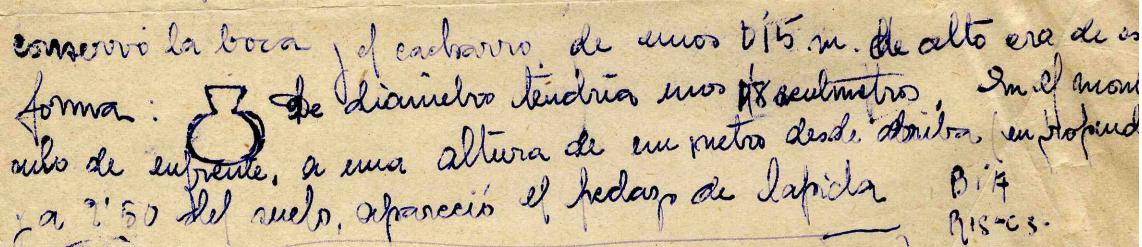 conservó la boca y el cacharro, de unos 0'15 m. de alto era de es
forma: De diámetro tendría unos 18 centímetros. En el mont
culo de enfrente, a una altura de un metro desde arriba (en profund
y a 2'50 del suelo, apareció el pedazo de lápida